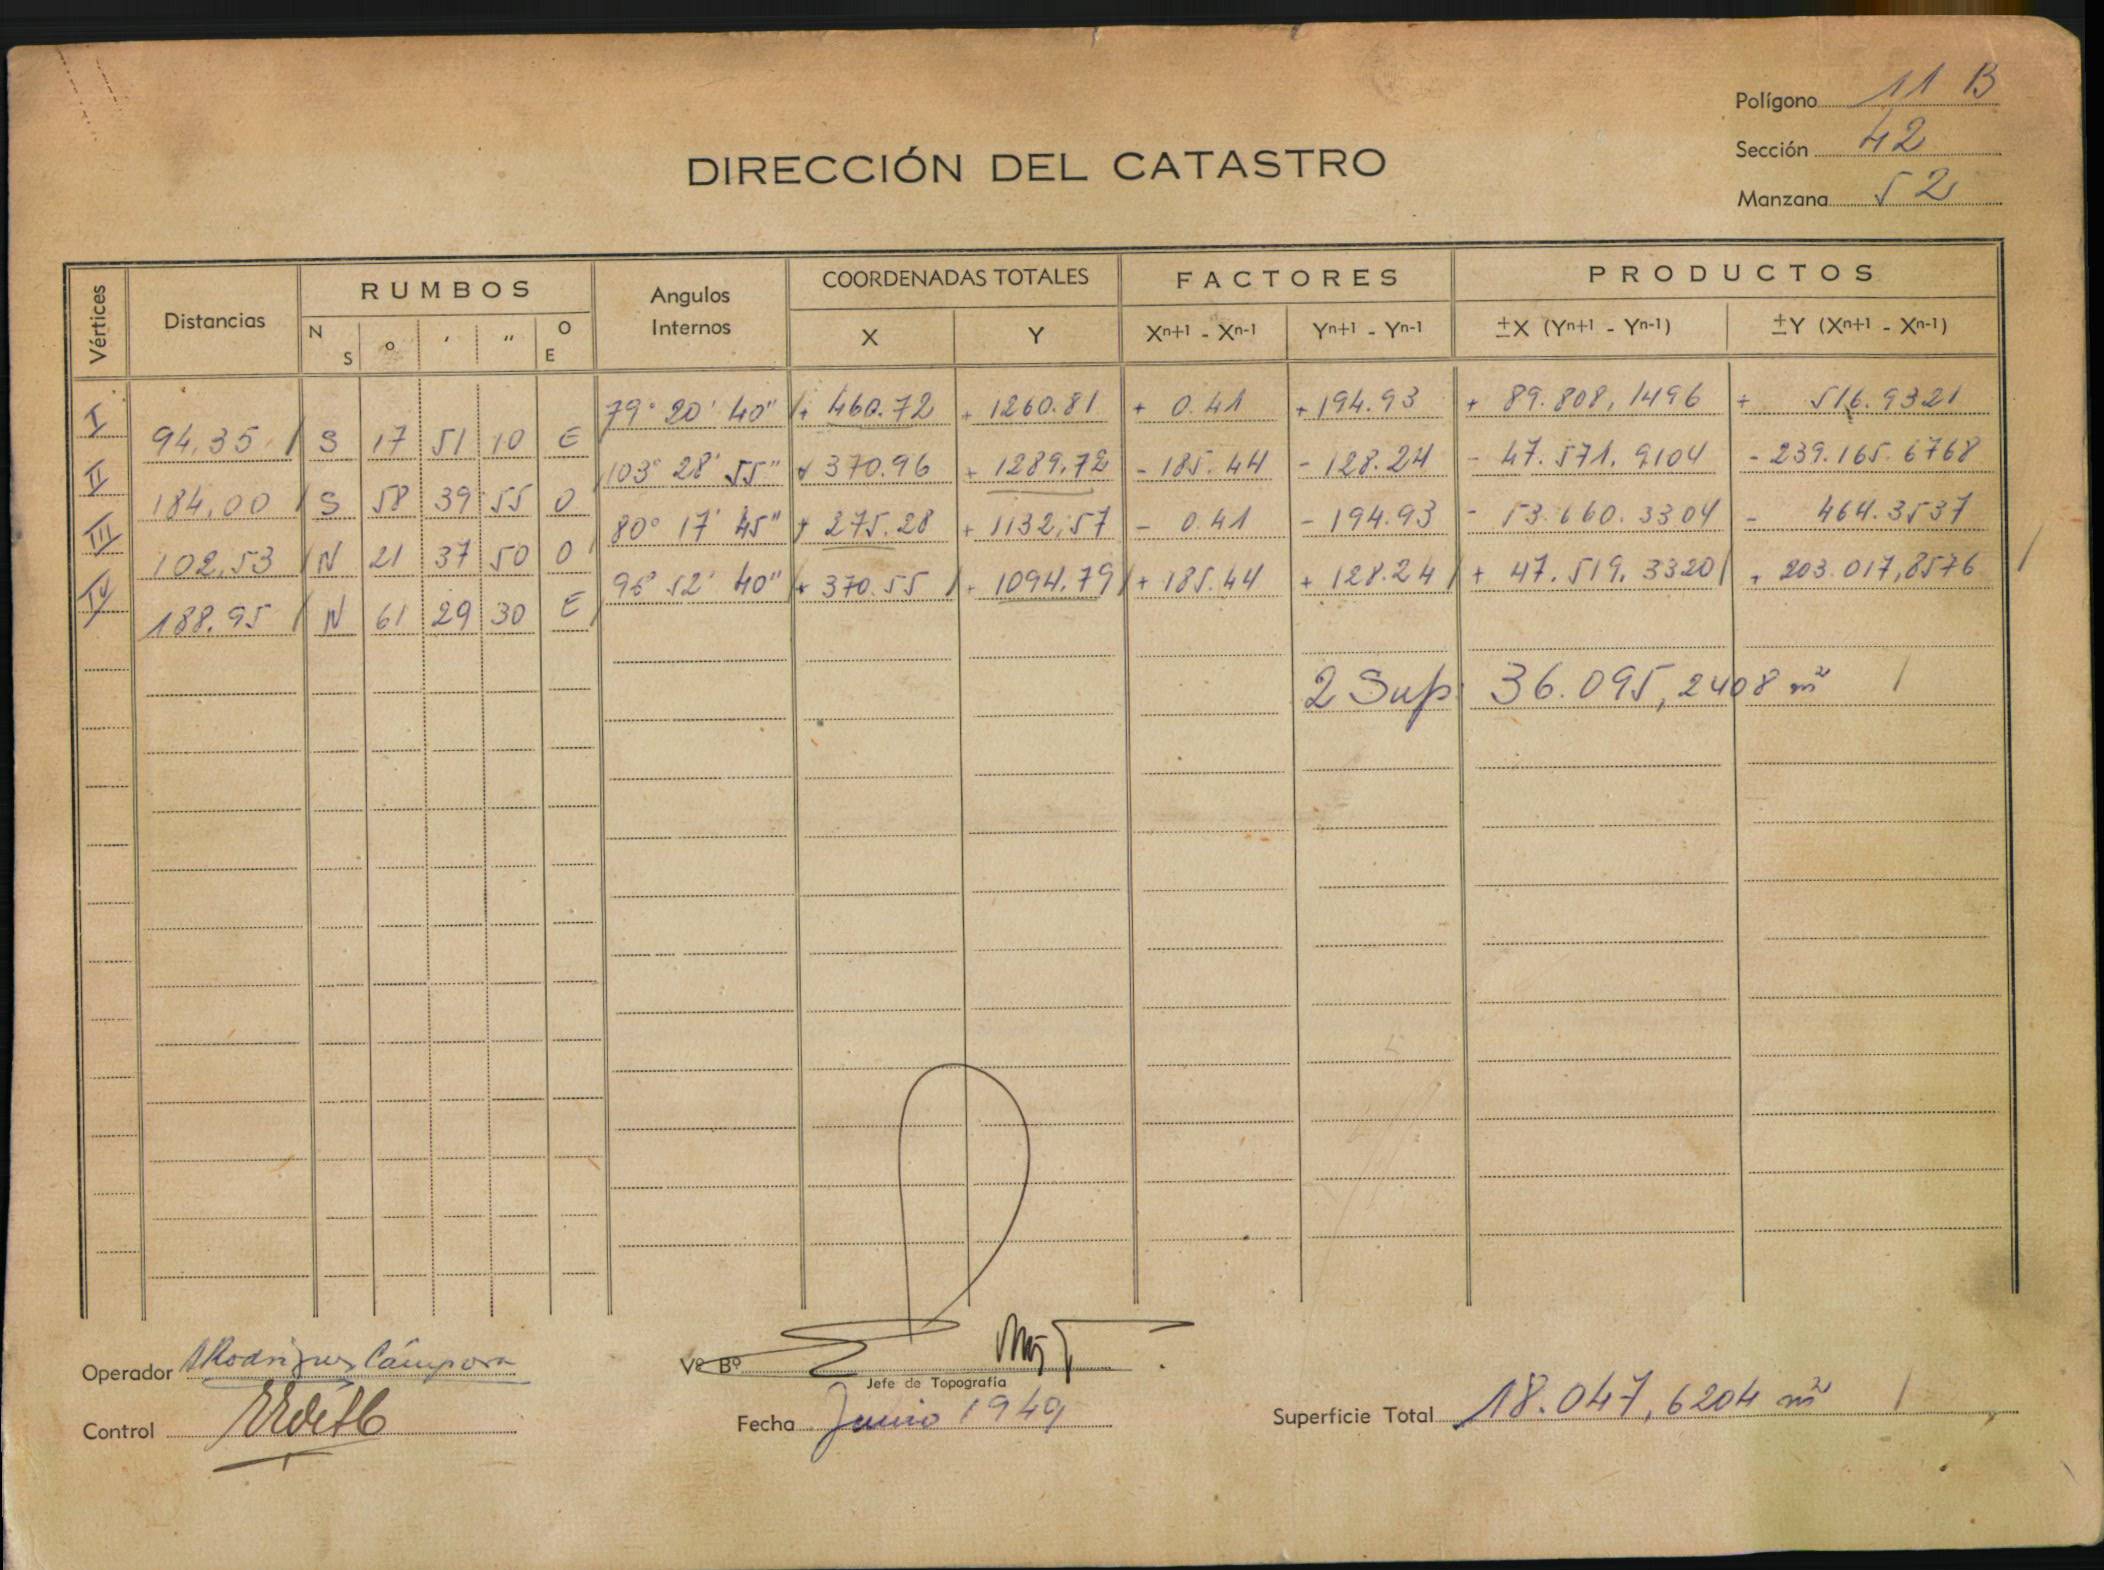 Polígono 11 B
Sección 42
Manzana 52
DIRECCIÓN DEL CATASTRO
Vértices Distancias RUMBOS Angulos Internos COORDENADAS TOTALES FACTORES PRODUCTOS
N S o ′ ″ O E X Y Xn+1 - Xn-1 Yn+1 - Yn-1 ±X (Yn+1 - Yn-1) ±Y (Xn+1 - Xn-1)
I 79° 20' 40" + 460.72 + 1260.81 + 0.41 + 194.93 + 89.808,1496 + 516.9321
94,35 S 17 51 10 E
II 103° 28' 55" + 370.96 + 1289.72 - 185.44 - 128.24 - 47.571.9104 - 239.165.6768
184,00 S 58 39 55 O
III 80° 17' 45" + 275.28 + 1132,57 - 0.41 - 194.93 - 53.660.3304 - 464.3537
102,53 N 21 37 50 O
IV 96° 52' 40" + 370.55 + 1094.79 + 185.44 + 128.24 + 47.519.3320 + 203.017,8576
188.95 N 61 29 30 E
2 Sup: 36.095,2408 m²
Operador Rodriguez Cámpora
Vº Bº
Jefe de Topografía
Control
Fecha Junio 1949
Superficie Total 18.047,6204 m²